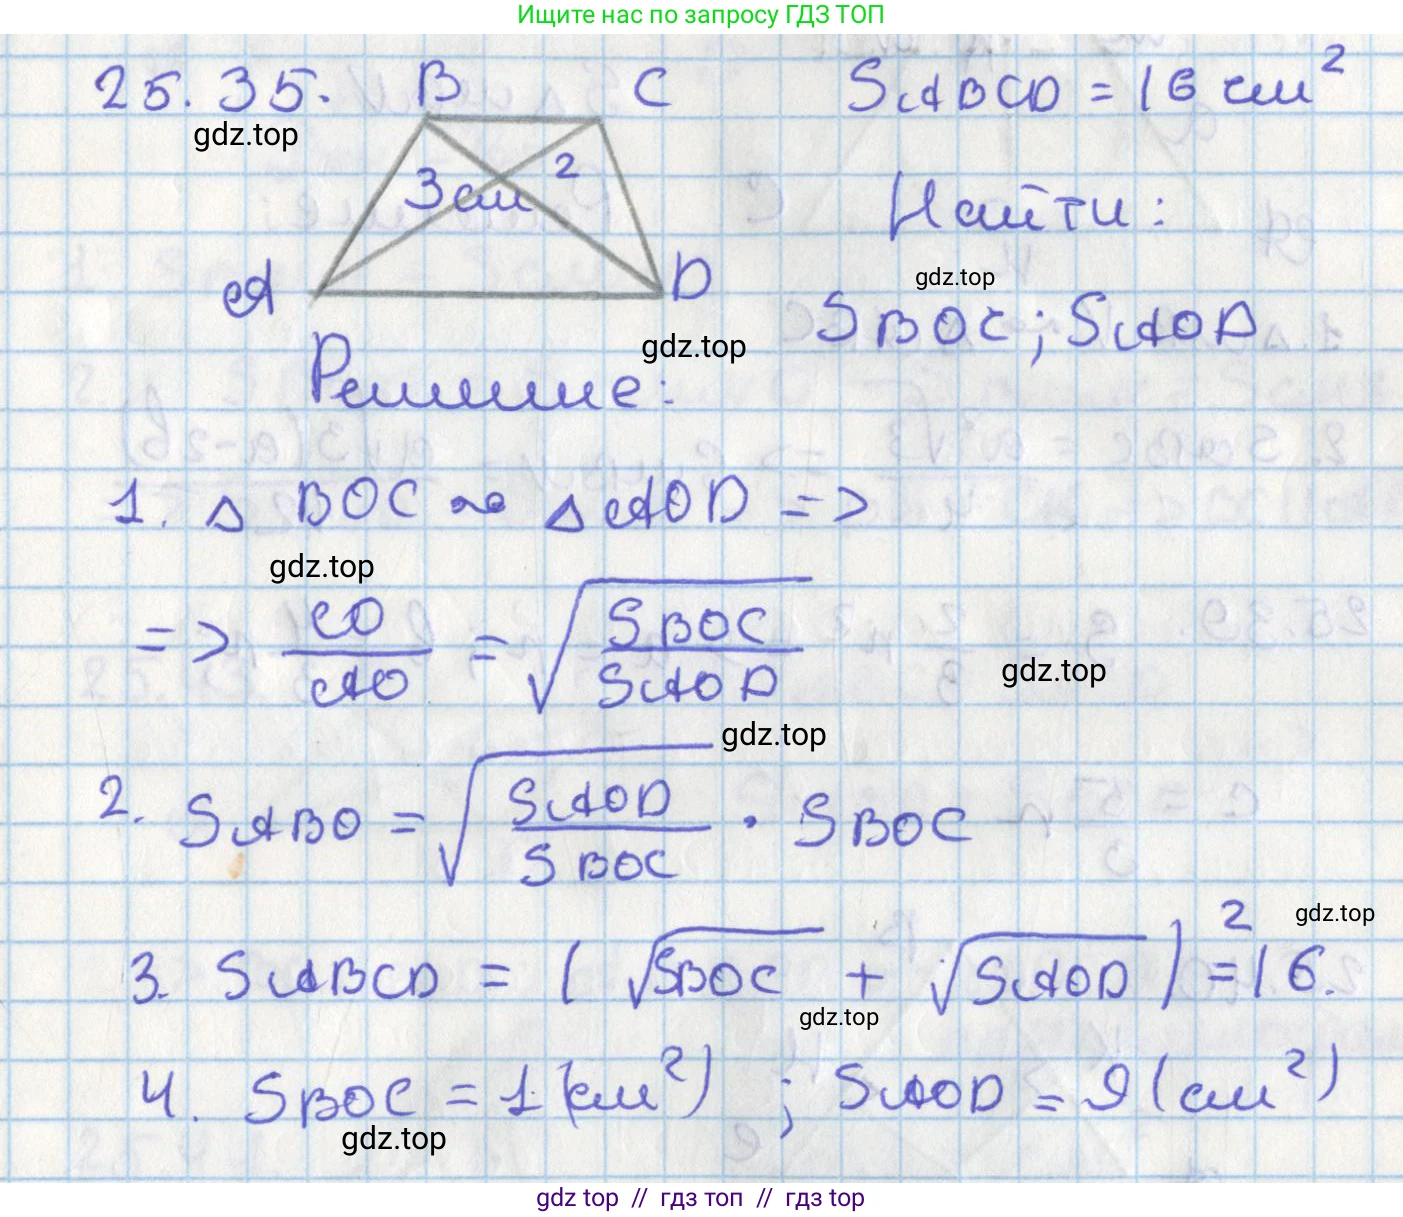 Ищите нас по запросу ГДЗ ТОП
25.35. B C S ABCD = 16 см²
gdz.top
3 см²
Найти:
A D
gdz.top
S BOC; S AOD
gdz.top
Решение:
1. △ BOC ~ △ AOD =>
gdz.top
=> CO/AO = √(S BOC / S AOD)
gdz.top
gdz.top
2. S ABO = √(S AOD / S BOC) · S BOC
gdz.top
3. S ABCD = (√S BOC + √S AOD)² = 16.
gdz.top
4. S BOC = 1 (см²) ; S AOD = 9 (см²)
gdz.top
gdz top // гдз топ // гдз top